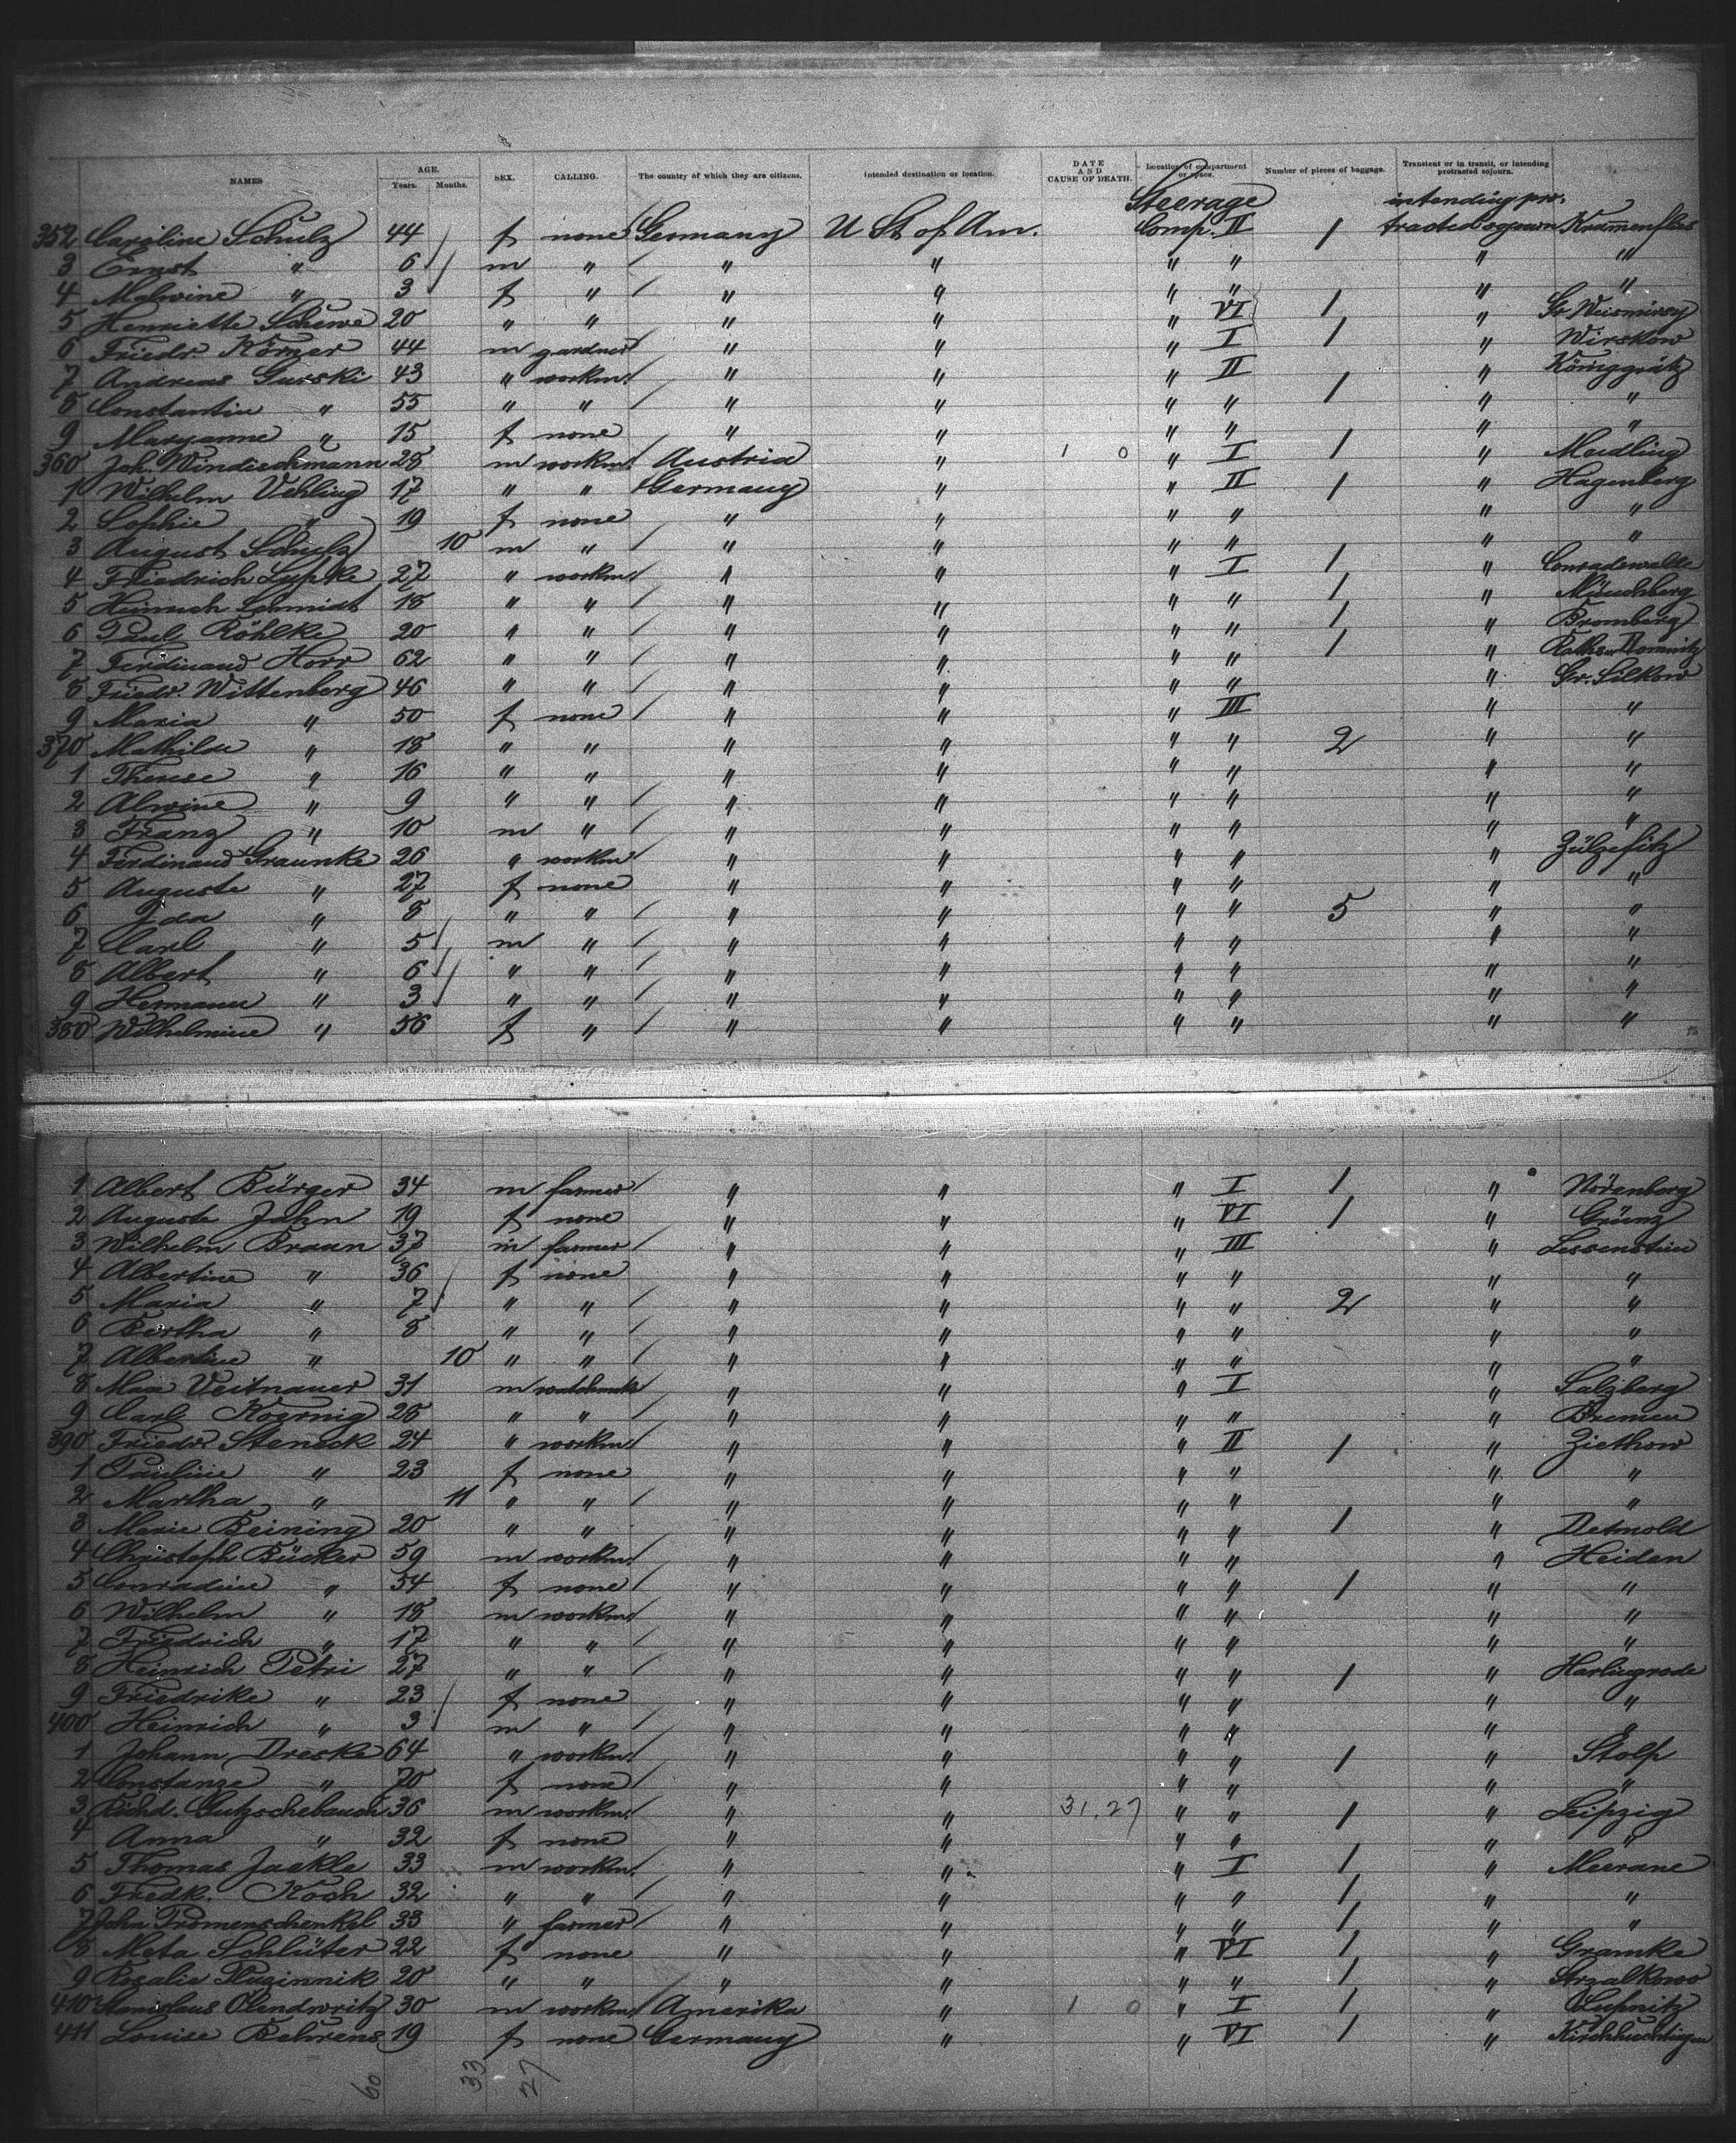 NAMES AGE. Years. Months. SEX. CALLING. The country of which they are citizens. Intended destination or location. DATE AND CAUSE OF DEATH. Location of compartment or space. Number of pieces of baggage. Transient or in transit, or intending protracted sojourn.
Steerage intending pro-
352 Caroline Schulz 44 f none Germany U St of Am. Comp. II 1 tracted sojourn
3 Ernst " 6 m " " " " " " "
4 Malwine " 3 f " " " " " " "
5 Henriette Schewe 20 " " " " " VI 1 "
6 Friedr Körner 44 m gardner " " " I 1 " Wirskow
7 Andreas Gurski 43 " workm. " " " II " Königgrätz
8 Constantin " 55 " " " " " " 1 " "
9 Maryanne " 15 f none " " " " " "
360 Joh. Windischmann 28 m workm. Austria " 1 0 " I 1 " Maidling
1 Wilhelm Vehling 17 " " Germany " " II 1 " Hagenberg
2 Sophie " 19 f none " " " " " "
3 August Schulz 10 m " " " " " " "
4 Friedrich Lypke 27 " workm. " " " I 1 "
5 Heinrich Schmidt 18 " " " " " " 1 " Münchberg
6 Paul Röhlke 20 " " " " " " 1 " Bromberg
7 Ferdinand Horr 62 " " " " " " 1 "
8 Friedr. Wittenberg 46 " " " " " " " Gr. Silkow
9 Maria " 50 f none " " " III " "
370 Mathilde " 18 " " " " " " 2 " "
1 Therese " 16 " " " " " " " "
2 Alwine " 9 " " " " " " " "
3 Franz " 10 m " " " " " " "
4 Ferdinand Graunke 26 " workm " " " " " Zülzefitz
5 Auguste " 27 f none " " " " " "
6 Ida " 8 " " " " " " 5 " "
7 Carl " 5 m " " " " " " "
8 Albert " 6 " " " " " " " "
9 Hermann " 3 " " " " " " " "
380 Wilhelmine " 56 f " " " " " " "
1 Albert Bürger 34 m farmer " " " I 1 " Nörenberg
2 Auguste Jahn 19 f none " " " VI 1 " Grünz
3 Wilhelm Braun 37 m farmer " " " III " Lessenstein
4 Albertine " 36 f none " " " " " "
5 Maria " 7 " " " " " " 2 " "
6 Bertha " 8 " " " " " " " "
7 Albertine " 10 " " " " " " " "
8 Max Veitnauer 31 m watchmak " " " I " Salzberg
9 Carl Koernig 28 " " " " " " " Bremen
390 Friedr. Steneck 24 " workm. " " " II 1 " Ziethow
1 Pauline " 23 f none " " " " " "
2 Martha " 11 " " " " " " " "
3 Marie Beining 20 " " " " " " 1 " Detmold
4 Christoph Bücker 59 m workm. " " " " " Heiden
5 Conradine " 54 f none " " " " 1 " "
6 Wilhelm " 18 m workm. " " " " " "
7 Friedrich " 17 " " " " " " " "
8 Heinrich Petri 27 " " " " " " 1 " Harlingrode
9 Friedrike " 23 f none " " " " " "
400 Heinrich " 3 m " " " " " " "
1 Johann Dreske 64 " workm. " " " " 1 " Stolp
2 Constanze " 70 f none " " " " " "
3 Richd. Gutzschebauch 36 m workm. " " 31.27 " " 1 " Leipzig
4 Anna " 32 f none " " " " " "
5 Thomas Jaekle 33 m workm. " " " I 1 " Meerane
6 Fredk. Koch 32 " " " " " " 1 " "
7 John Tromenschenkel 33 " farmer " " " " 1 " "
8 Meta Schlüter 22 f none " " " VI 1 " Gramke
9 Rosalie Pluzinnik 20 " " " " " " 1 " Strzalkowo
410 Stanislaus Olendwritz 30 m workm Amerika " 1 0 " I 1 " Lupnitz
411 Louise Behrens 19 f none Germany " " VI 1 "
60 33 27